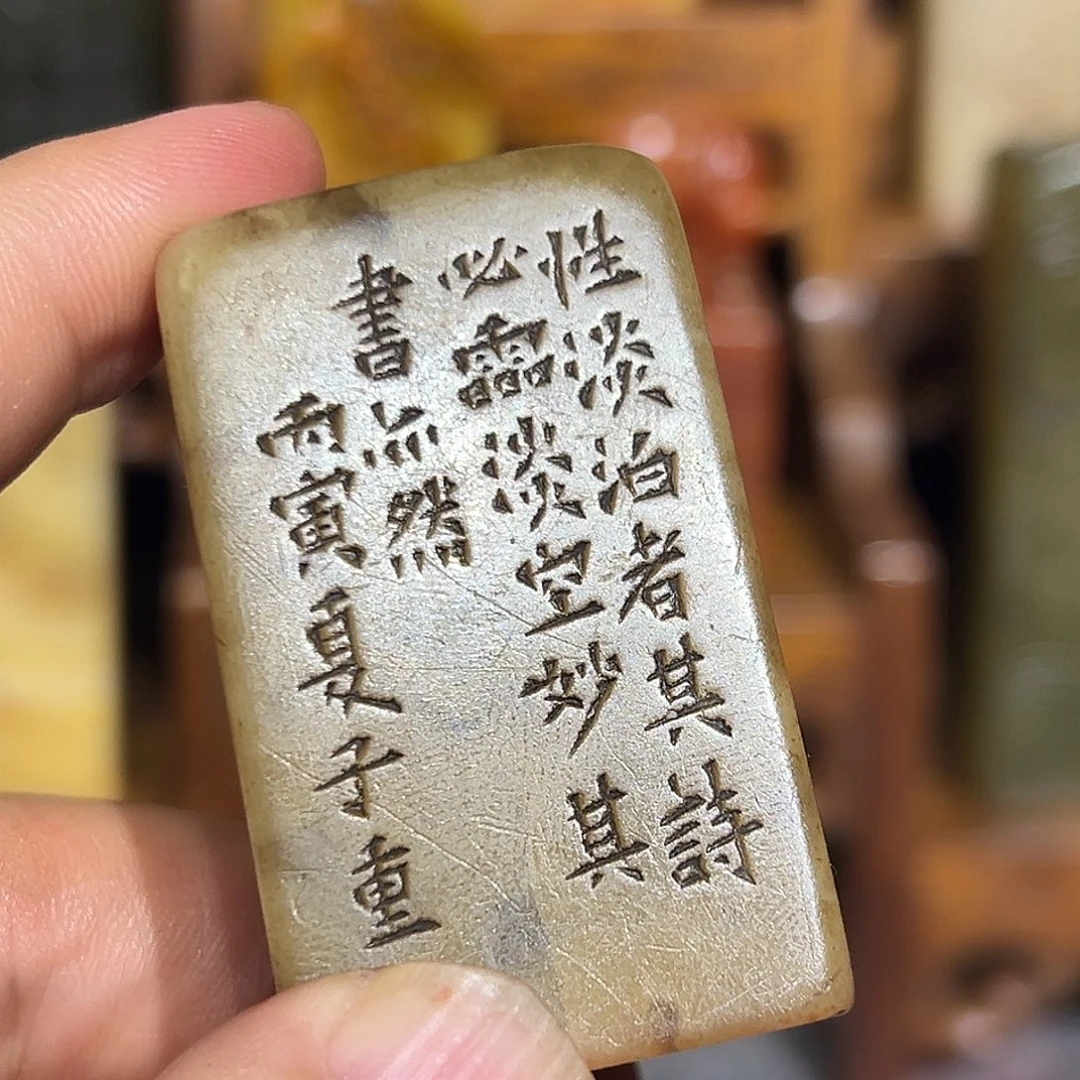 性淡泊者其詩
必霝淡空妙其
書亦然
丙寅夏子重